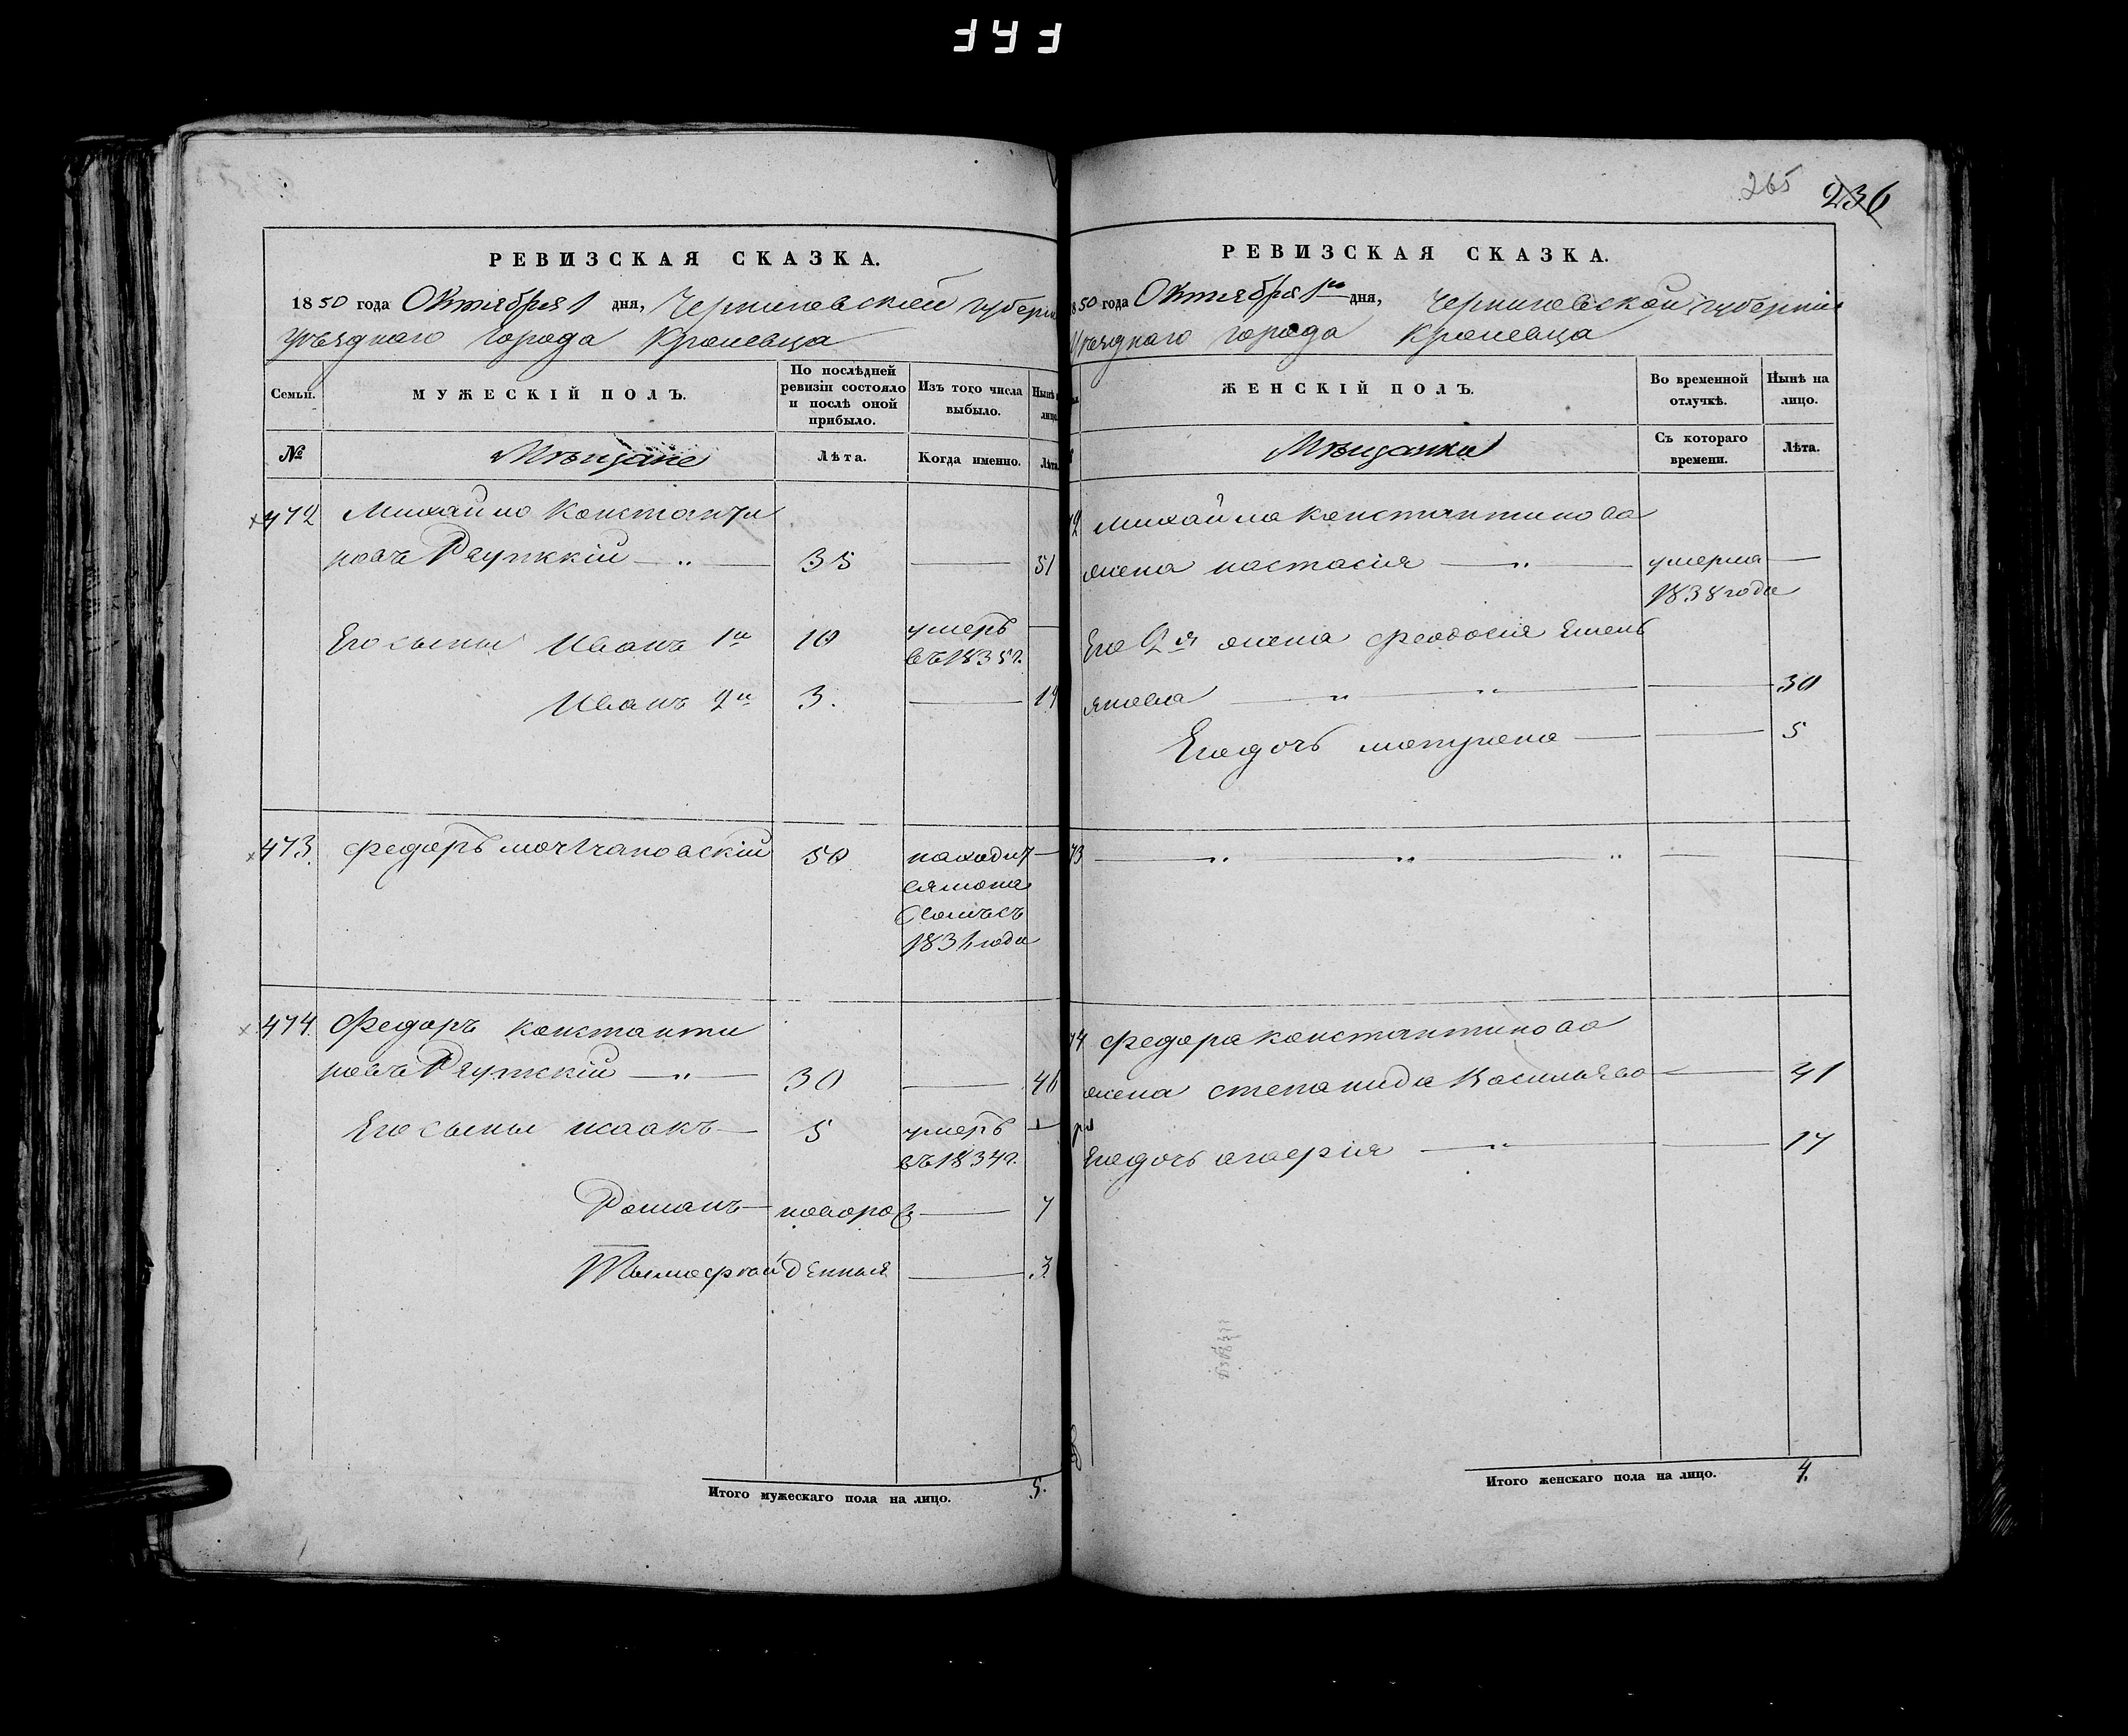 265 236
РЕВИЗСКАЯ СКАЗКА.
1850 года Октября 1 дня, Черниговской губерн
уѣзднаго города Кролевца
Семьи.
МУЖЕСКІЙ ПОЛЪ.
По послѣдней ревизіи состояло и послѣ оной прибыло.
Изъ того числа выбыло.
Нынѣ лицо
№
Мѣщане
Лѣта.
Когда именно.
Лѣта
472 Михайло Константи
новъ Реутскій — 35 — 51
Его сыны Иванъ 1й 10 умеръ —
въ 1835г.
Иванъ 2й 3. — 19
473. Федоръ 50 находит —
ся
1831 года
474. Федоръ Константи
новъ Реутскій — 30 — 46
Его сыны Исаакъ — 5 умеръ —
въ 1834г.
Романъ — новоро — 7
Тимофей денныя — 3
Итого мужескаго пола на лицо. 5.
РЕВИЗСКАЯ СКАЗКА.
1850 года Октября 1го дня, Черниговской губерніи
Уѣзднаго города Кролевца
ЖЕНСКІЙ ПОЛЪ.
Во временной отлучкѣ.
Нынѣ на лицо.
Мѣщанки
Съ котораго времени.
Лѣта.
72 Михайла Константинова
жена Настасія — умерла —
1838 года
Его 2я жена Феодосія Емель
янова — — 30
Его дочь Матрена — — 5
73 — — —
74 Федора Константинова
жена Степанида Васильева — 41
Его дочь — — 17
Итого женскаго пола на лицо. 4.